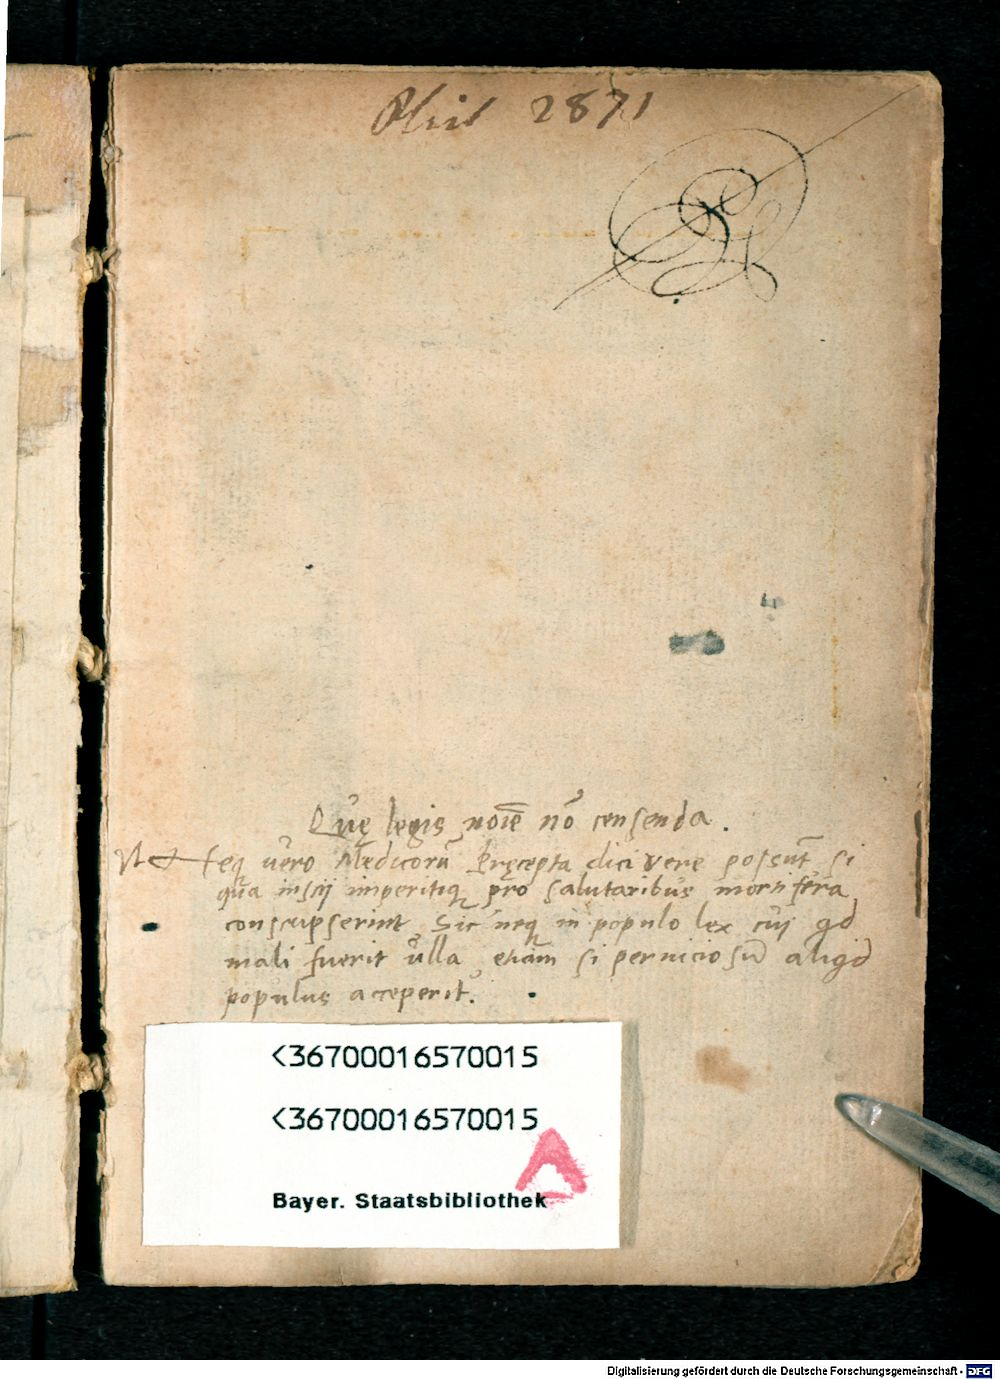 2871
Quę legis noīe nō censenda.
Neq vero Medicorū Pręcepta dici vere possūt si
qua inscij imperitiq pro salutaribus mortifera
conscripserint, Sic neq in populo lex cuj
mali fuerit ulla, etiam si perniciosū aliqd
populus acceperit.
<36700016570015
<36700016570015
Bayer. Staatsbibliothek
Digitalisierung gefördert durch die Deutsche Forschungsgemeinschaft - DFG